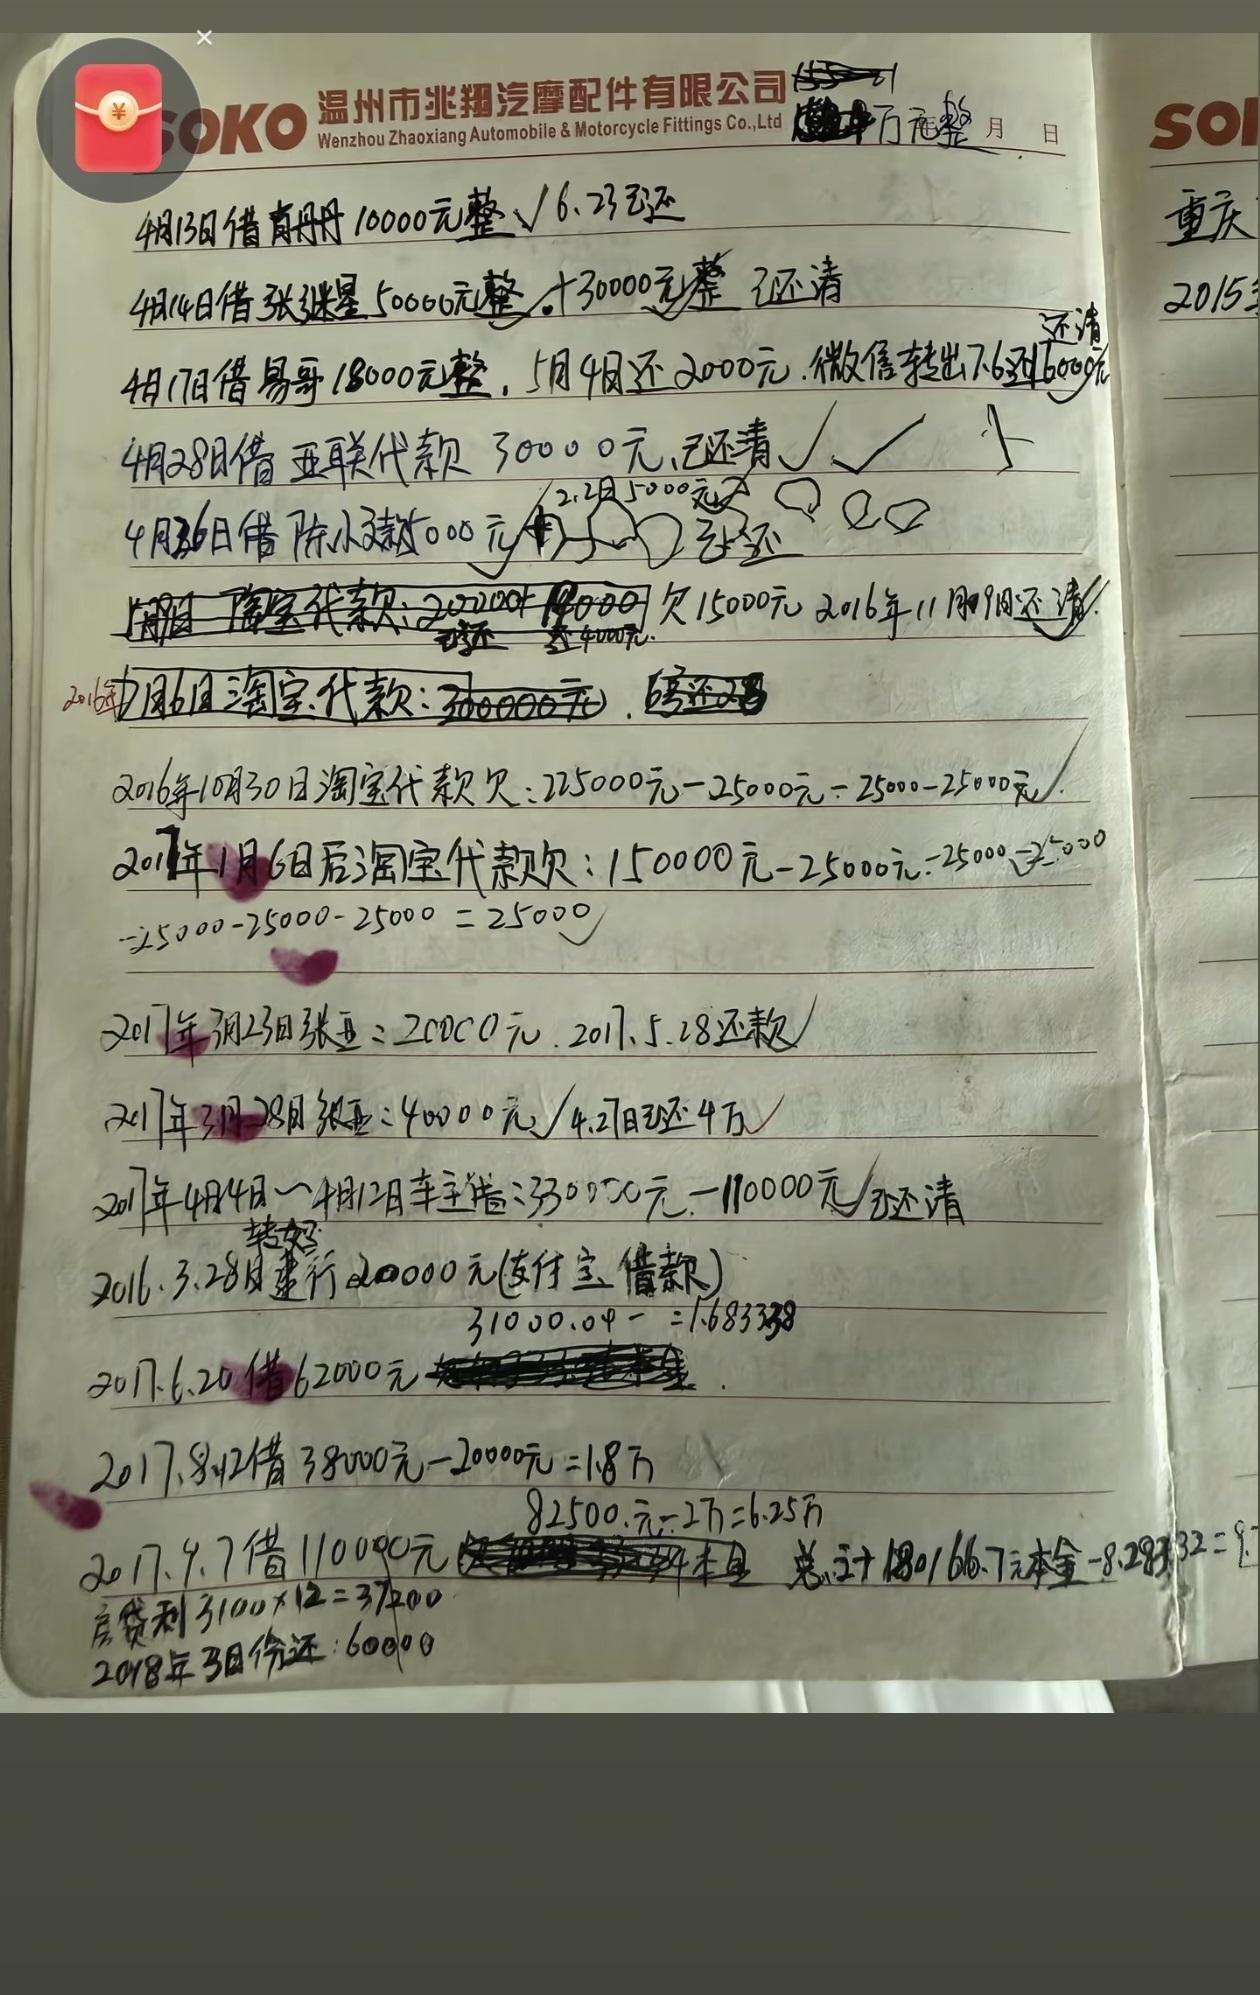 SOKO 温州市兆翔汽摩配件有限公司
Wenzhou Zhaoxiang Automobile & Motorcycle Fittings Co.,Ltd
万元整 月 日
4月13日借 丹丹 10000元整 √ 6.23已还
4月14日借张继星50000元整 + 30000元整 已还清
还清
4月17日借易哥18000元整, 5月4日还2000元.微信转出7.6还16000元
4月28日借亚联代款 30000元,已还清
2.2日5000元
4月36日借陈小 5000元 已还
淘宝代款: 200000+ 欠15000元 2016年11月09日还清
已还 还4000元.
2016年7月6日淘宝代款: 300000元.
2016年10月30日淘宝代款欠:225000元-25000元-25000-25000元
2017年1月6日后淘宝代款欠:150000元-25000元-25000-25000
-25000-25000-25000=25000
2017年3月23日张亚:20000元.2017.5.28还款
2017年3月28日张亚:40000元 4.27日已还4万
2017年4月4日~4月12日车主借:330000元-110000元 已还清
2016.3.28日建行20000元(支付宝借款)
31000.04- =1.683338
2017.6.20借62000元
2017.8.12借38000元-20000元=1.8万
82500.元-2万=6.25万
2017.9.7借110000元 总计+180166.7元本金-8.28332=9.
房贷利3100×12=37200
2018年3月份还:60000
重庆
2015